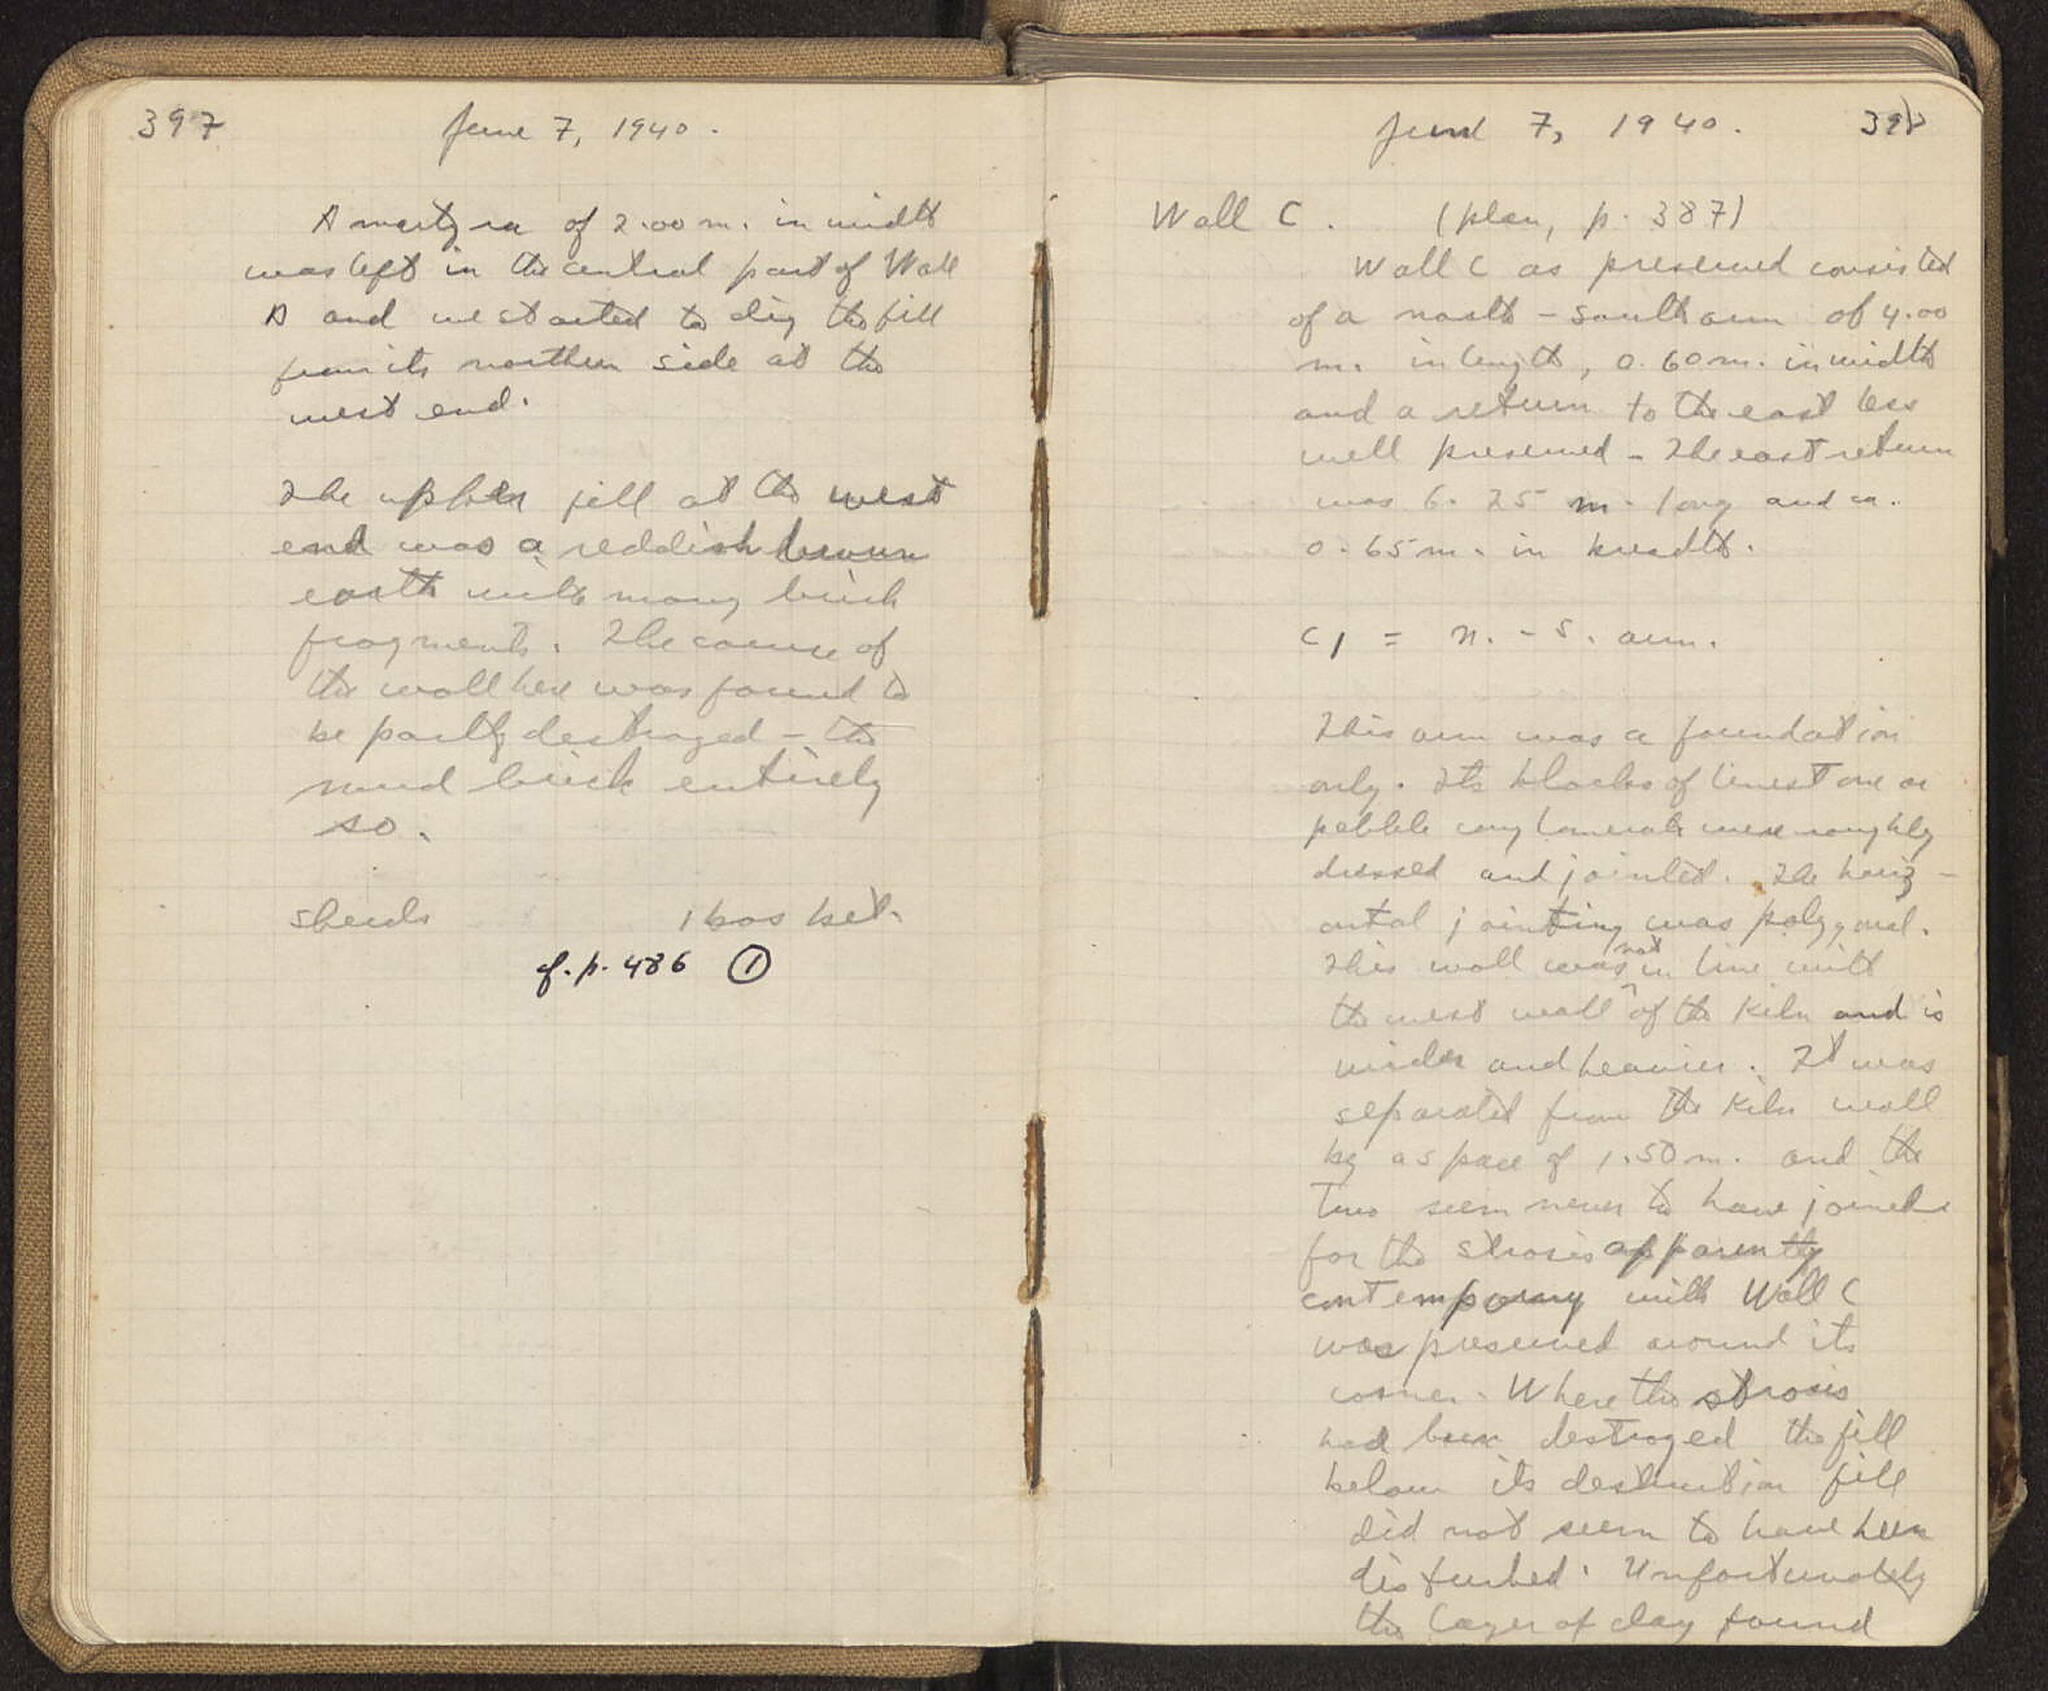 397
June 7, 1940.
A martyra of 2.00 m. in width
was left in the central part of Wall
A and we started to dig the fill
from its northern side at the
west end.
The upper fill at the west
end was a reddish brown
earth with many brick
fragments. The course of
the wall here was found to
be partly destroyed - the
mud brick entirely
so.
sherds 1 basket.
cf. p. 486 ①
June 7, 1940. 398
Wall C. (plan, p. 387)
Wall C as preserved consisted
of a north - south arm of 4.00
m. in length, 0.60 m. in width
and a return to the east less
well preserved - The east return
was 6.25 m. long and ca.
0.65 m. in breadth.
C1 = n. - s. arm.
This arm was a foundation
only. Its blocks of limestone or
pebble conglomerate were roughly
dressed and jointed. The horiz-
ontal jointing was polygonal.
This wall was not in line with
the west wall of the kiln and is
wider and heavier. It was
separated from the kiln wall
by a space of 1.50 m. and the
two seem never to have joined
for the strosis apparently
contemporary with Wall C
was preserved around its
corner. Where the strosis
had been destroyed the fill
below its destruction fill
did not seem to have been
disturbed. Unfortunately
the layer of clay found